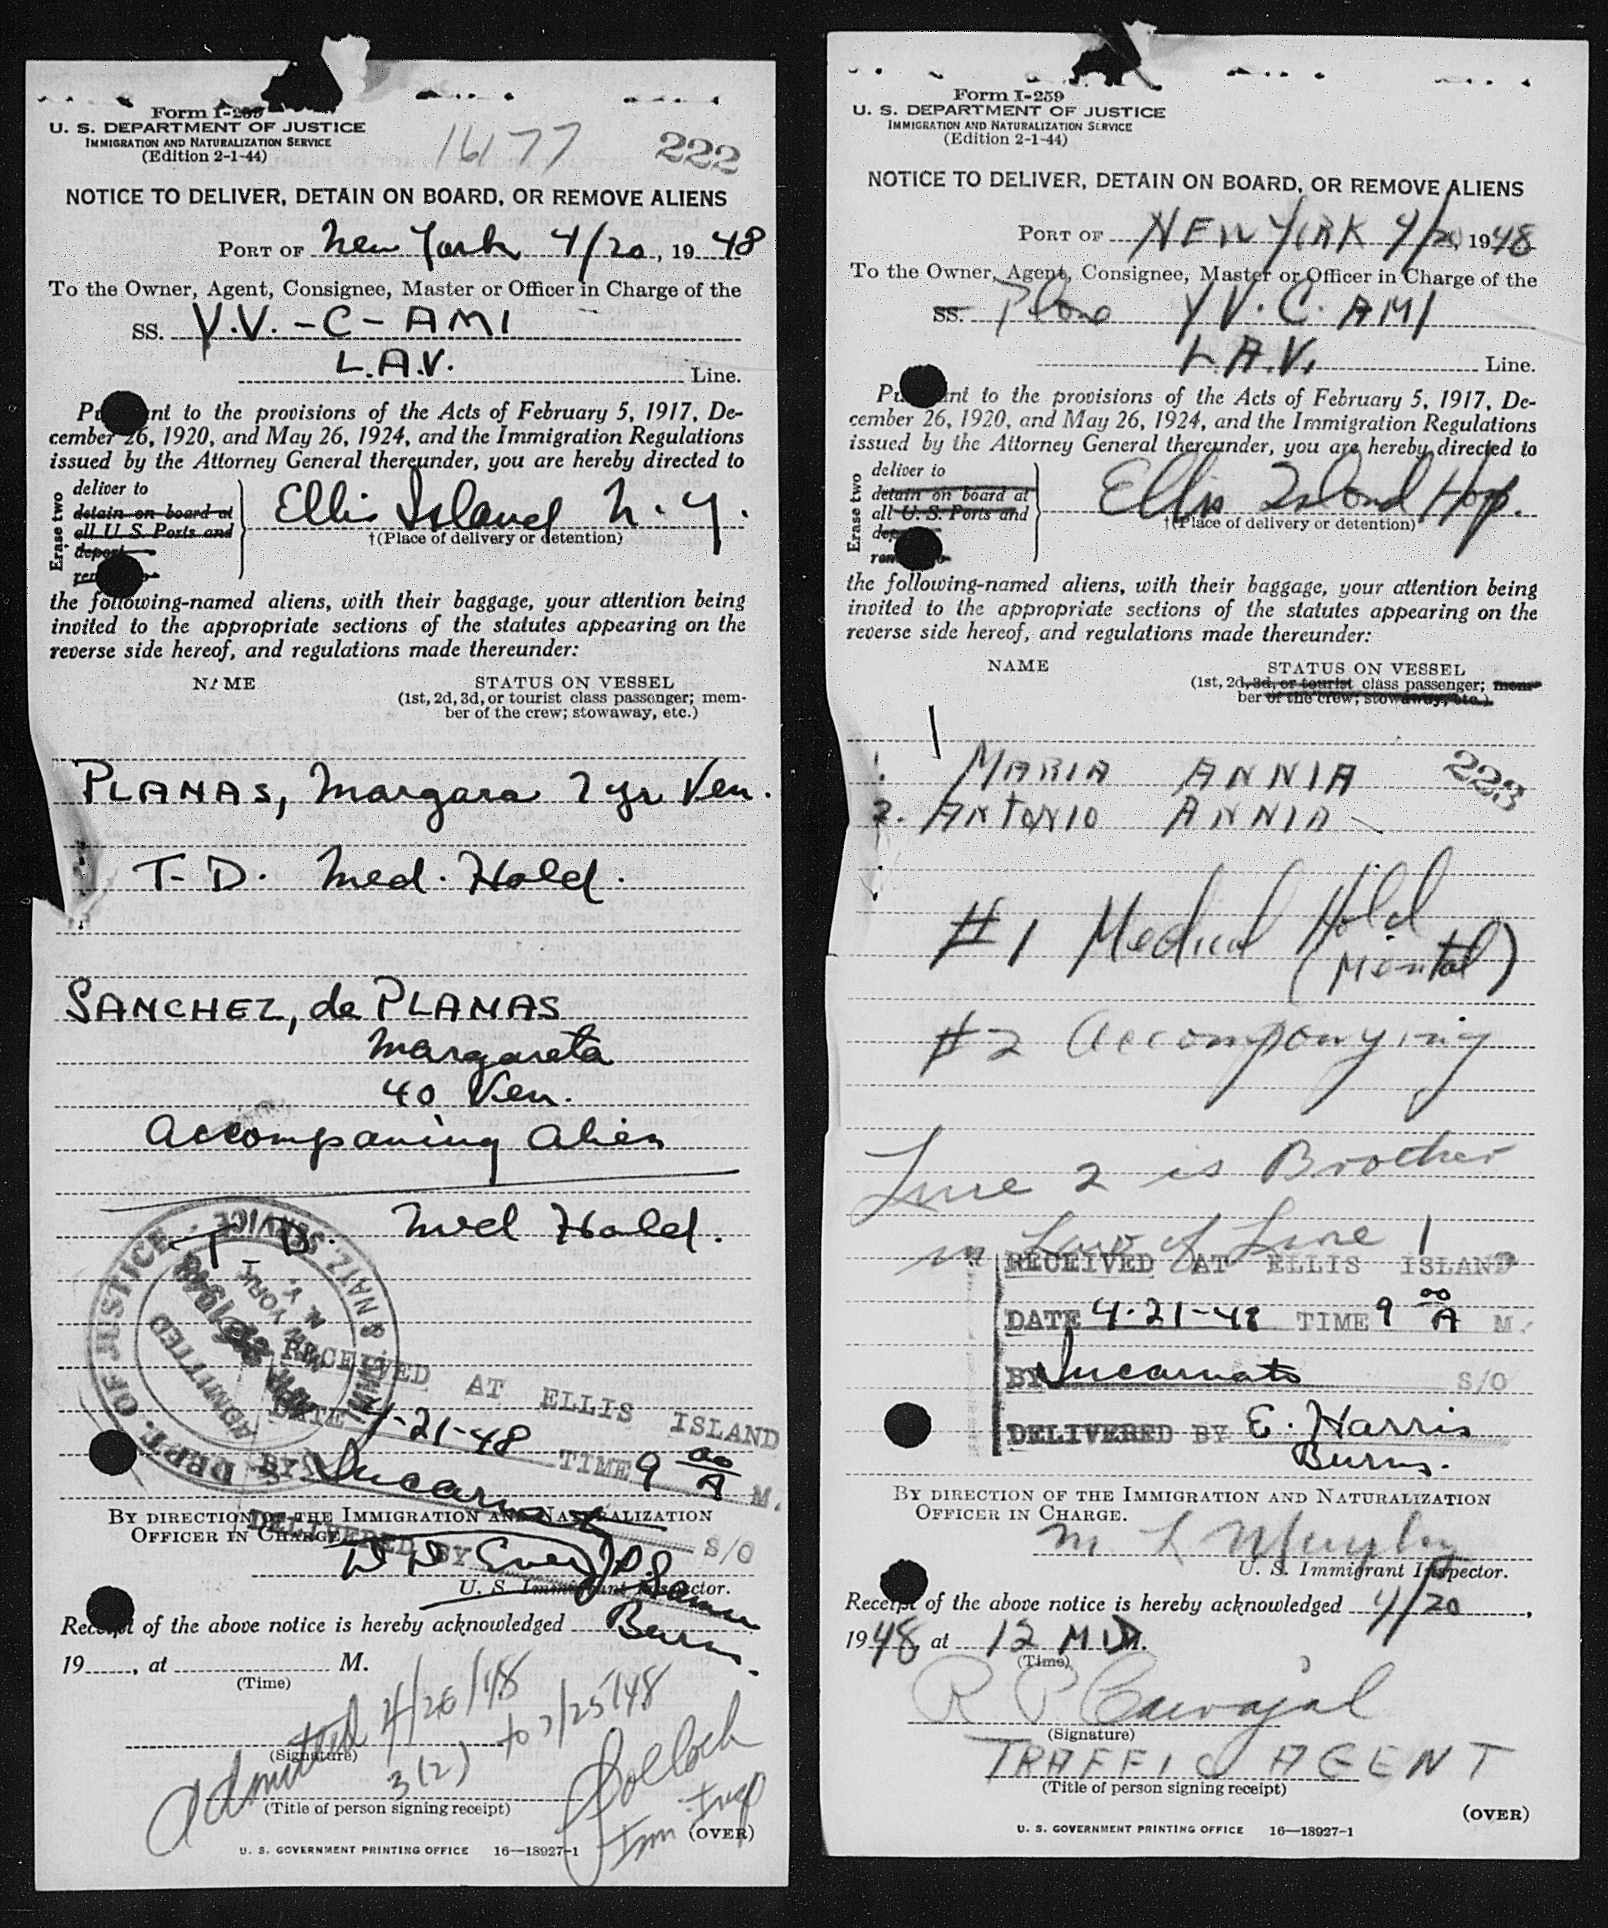 Form I-259
U. S. DEPARTMENT OF JUSTICE
IMMIGRATION AND NATURALIZATION SERVICE
(Edition 2-1-44)
16177
222
NOTICE TO DELIVER, DETAIN ON BOARD, OR REMOVE ALIENS
PORT OF New York 4/20, 19 48
To the Owner, Agent, Consignee, Master or Officer in Charge of the
SS. Y.V.-C-AMI
L.A.V. Line.
Pursuant to the provisions of the Acts of February 5, 1917, De-
cember 26, 1920, and May 26, 1924, and the Immigration Regulations
issued by the Attorney General thereunder, you are hereby directed to
Erase two
deliver to
detain on board at
all U. S. Ports and
deport
remove to
Ellis Island N.Y.
†(Place of delivery or detention)
the following-named aliens, with their baggage, your attention being
invited to the appropriate sections of the statutes appearing on the
reverse side hereof, and regulations made thereunder:
NAME STATUS ON VESSEL
(1st, 2d, 3d, or tourist class passenger; mem-
ber of the crew; stowaway, etc.)
PLANAS, Margara 7 yr Ven.
T.D. Med. Hold.
SANCHEZ, de PLANAS
Margareta
40 Ven.
Accompaning alien
T D. Med Hold.
DEPT. OF JUSTICE IMMI. & NATZ. SERVICE
NEW YORK, N. Y.
ADMITTED
RECEIVED AT ELLIS ISLAND
DATE 4-21-48 TIME 9 00 A M.
BY Incarnato S/O
DELIVERED BY
Burns.
BY DIRECTION OF THE IMMIGRATION AND NATURALIZATION
OFFICER IN CHARGE.
U. S. Immigrant Inspector.
Receipt of the above notice is hereby acknowledged
19 , at M.
(Time)
Admitted 4/26/48
3(2) to 7/25/48
(Signature)
Pollock
Imm. Insp
(Title of person signing receipt)
(OVER)
U. S. GOVERNMENT PRINTING OFFICE 16—18927-1
Form I-259
U. S. DEPARTMENT OF JUSTICE
IMMIGRATION AND NATURALIZATION SERVICE
(Edition 2-1-44)
NOTICE TO DELIVER, DETAIN ON BOARD, OR REMOVE ALIENS
PORT OF NEW YORK 4/20, 19 48
To the Owner, Agent, Consignee, Master or Officer in Charge of the
SS. Plane YV.C.AMI
L.A.V. Line.
Pursuant to the provisions of the Acts of February 5, 1917, De-
cember 26, 1920, and May 26, 1924, and the Immigration Regulations
issued by the Attorney General thereunder, you are hereby directed to
Erase two
deliver to
detain on board at
all U. S. Ports and
deport
remove to
Ellis Island Hosp.
†(Place of delivery or detention)
the following-named aliens, with their baggage, your attention being
invited to the appropriate sections of the statutes appearing on the
reverse side hereof, and regulations made thereunder:
NAME STATUS ON VESSEL
(1st, 2d, 3d, or tourist class passenger; mem-
ber of the crew; stowaway, etc.)
1. MARIA ANNIA 223
2. ANTONIO ANNIA
#1 Medical Hold
(Mental)
#2 Accompanying
Line 2 is Brother
in Law of Line 1
RECEIVED AT ELLIS ISLAND
DATE 4-21-48 TIME 9 00 A M.
BY Incarnato S/O
DELIVERED BY E. Harris
Burns.
BY DIRECTION OF THE IMMIGRATION AND NATURALIZATION
OFFICER IN CHARGE.
M L Murphy
U. S. Immigrant Inspector.
Receipt of the above notice is hereby acknowledged 4/20,
19 48, at 12 MID M.
(Time)
R P Carvajal
(Signature)
TRAFFIC AGENT
(Title of person signing receipt)
(OVER)
U. S. GOVERNMENT PRINTING OFFICE 16—18927-1